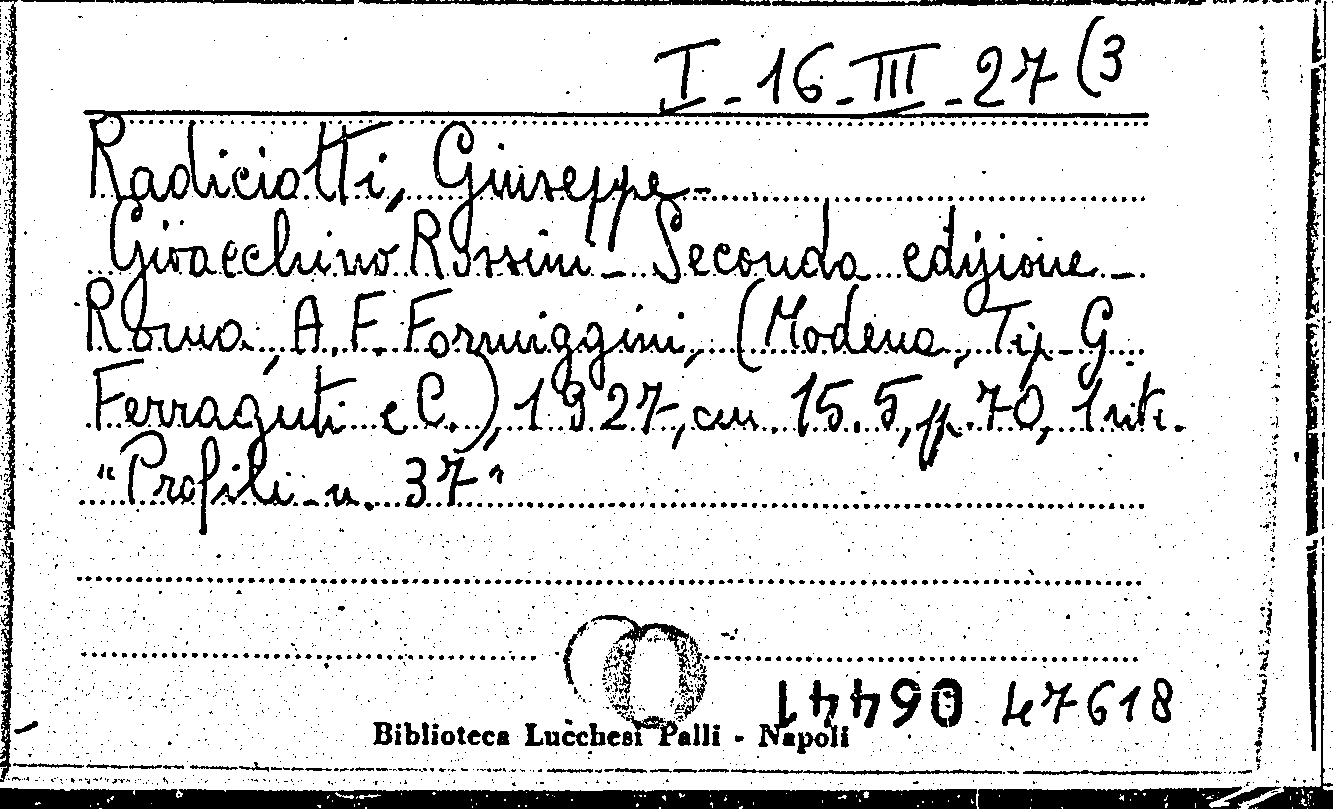 I - 16 - III - 27 (3
Radiciotti, Giuseppe -
Gioacchino Rossini - Seconda edizione -
Roma, A. F. Formiggini, (Modena, Tip. G.
Ferraguti e C.), 1927, cm. 15.5, pp. 70, 1 rit.
"Profili - n. 37"
06441 47618
Biblioteca Lucchesi Palli - Napoli